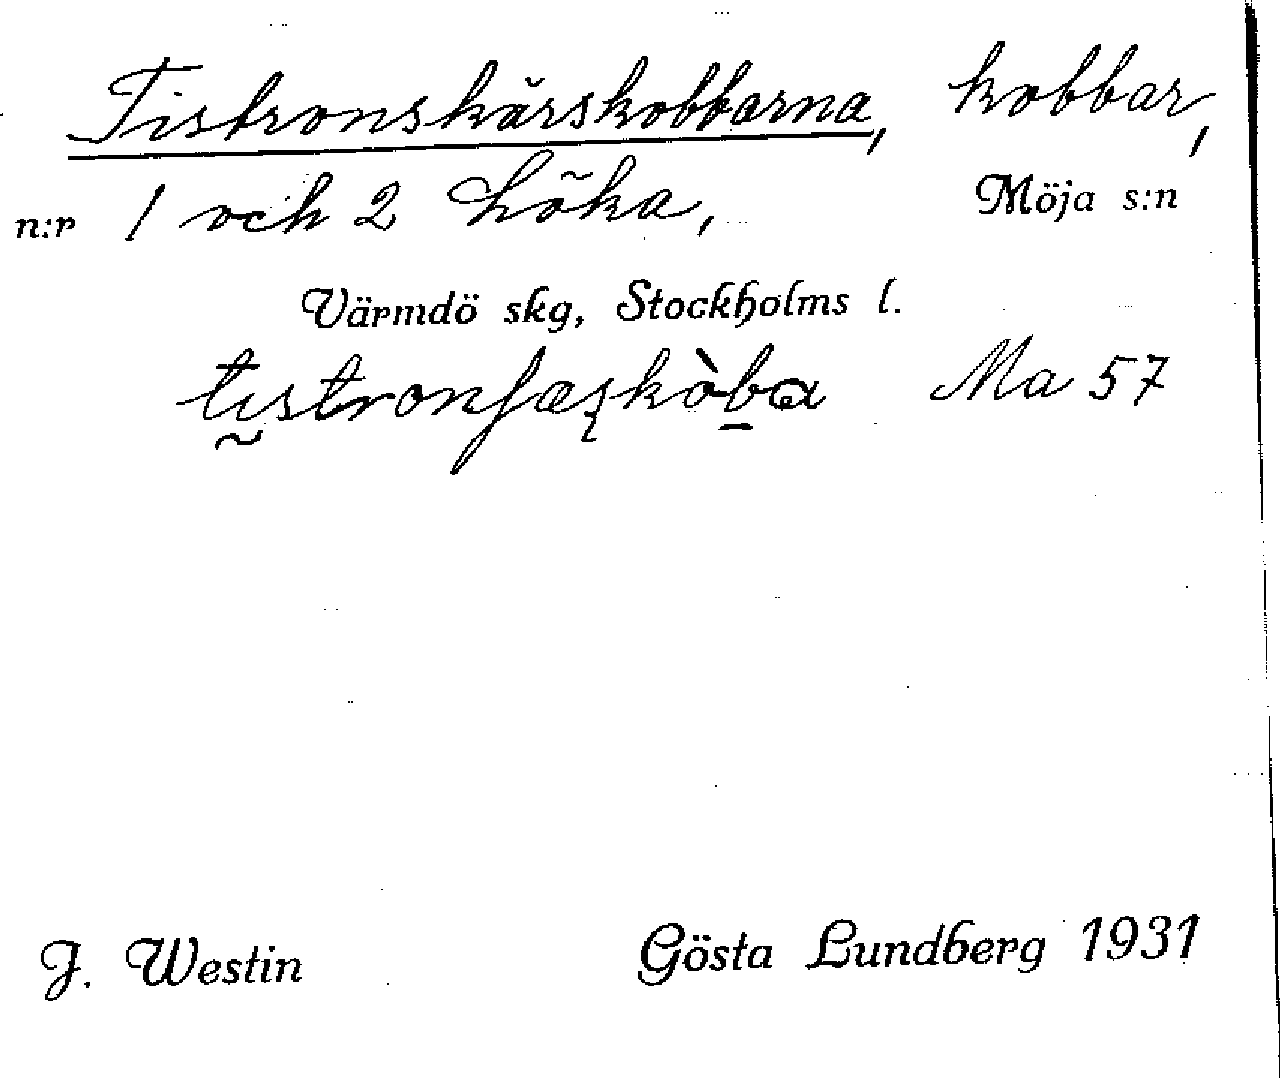 Tistronskärskobbarna, kobbar,
n:r 1 och 2 Löka, Möja s:n
Värmdö skg, Stockholms l.
Ma 57
J. Westin Gösta Lundberg 1931